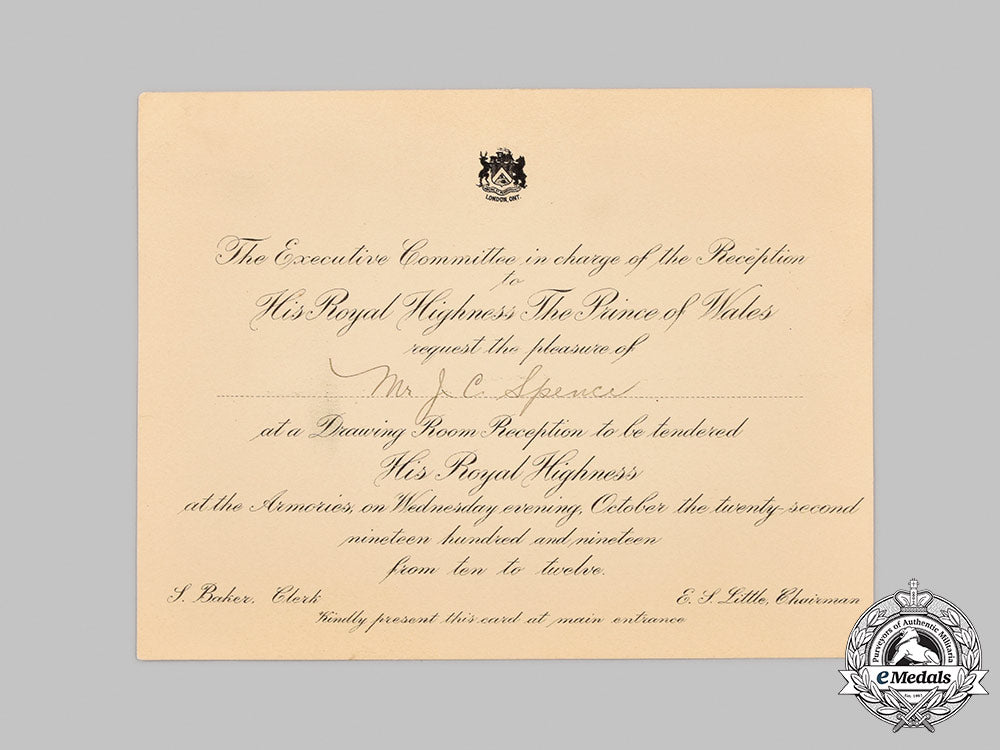 LONDON, ONT.
The Executive Committee in charge of the Reception
to
His Royal Highness The Prince of Wales
request the pleasure of
Mr J C. Spence
at a Drawing Room Reception to be tendered
His Royal Highness
at the Armories, on Wednesday evening, October the twenty-second
nineteen hundred and nineteen
from ten to twelve.
S. Baker, Clerk
E. S. Little, Chairman
Kindly present this card at main entrance
Purveyors of Authentic Militaria
eMedals